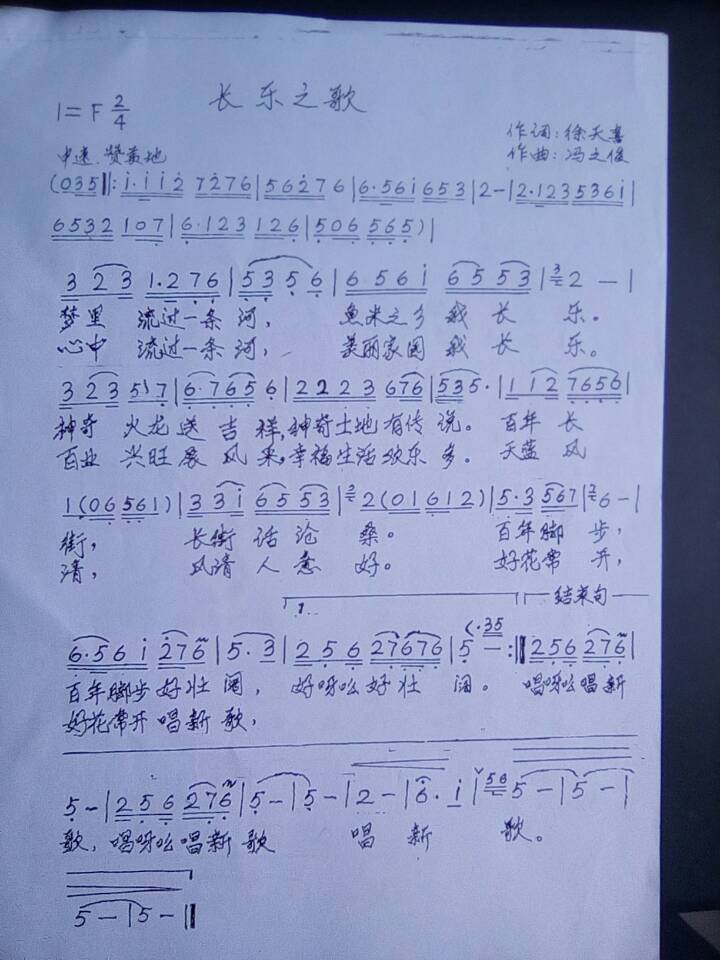 长乐之歌
1=F 2/4
作词:徐天喜
中速 赞美地
作曲:冯之俊
(035‖: 1·112 7276|56276|6·561653|2-|2·1235361|
6532 107|6·123 126|506 565)|
3 23 1·276|5356|6561 6553|3 2-|
梦里 流过一条河, 鱼米之乡我长乐。
心中 流过一条河, 美丽家园我长乐。
3 23 517|6·7656|2223 676|535·|112 7656|
神奇 火龙送吉祥,神奇土地有传说。 百年长
百业 兴旺展风采,幸福生活欢乐多。 天蓝风
1(06561)|331 6553|3 2(01612)|5·3 567|2 6-|
街, 长街话沧桑。 百年脚步,
清, 风清人意好。 好花常开,
1. 结束句
(·35
6·561 276|5·3|256 27676|5-:‖256 276|
百年脚步好壮阔, 好呀么好壮阔。 唱呀么唱新
好花常开唱新歌,
5-|256 276|5-|5-|2-|6·1|56 5-|5-|
歌,唱呀么唱新歌 唱新歌。
5-|5-‖